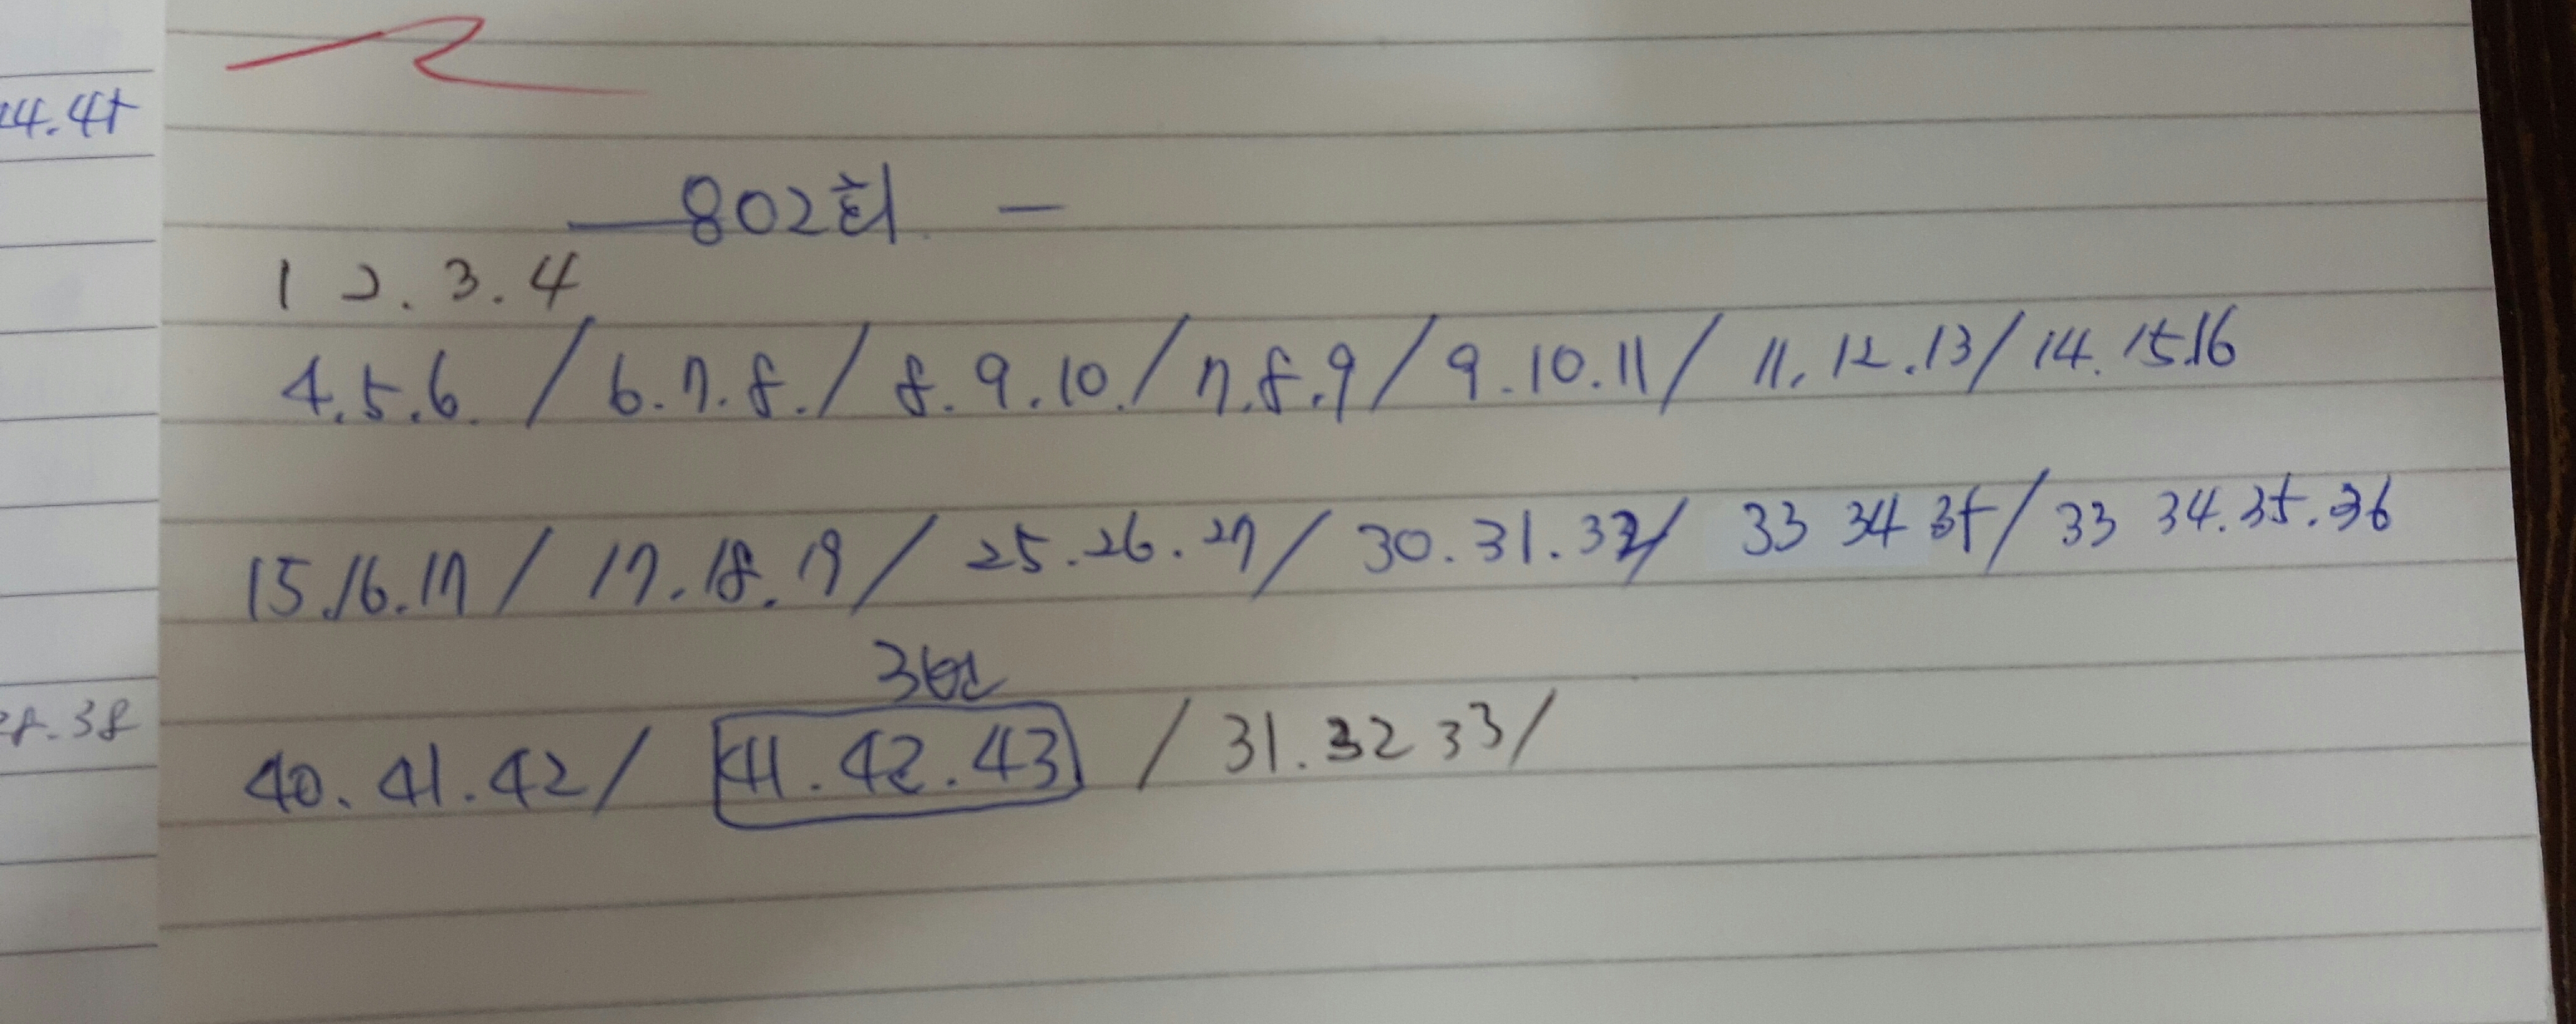 14.45
802회. -
1 2.3.4
4.5.6. / 6.7.8. / 8.9.10. / 7.8.9 / 9.10.11 / 11.12.13 / 14.15.16
15.16.17 / 17.18.19 / 25.26.27 / 30.31.32 / 33 34 35 / 33 34.35.36
38.38
40.41.42 / 41.42.43 / 31.32 33 /